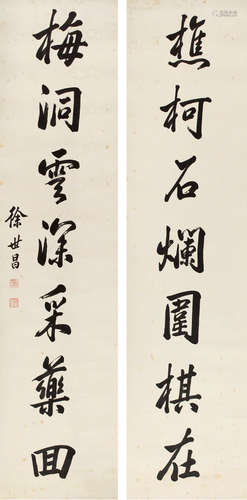 樵柯石爛圍棋在
梅洞雲深采藥回
徐世昌